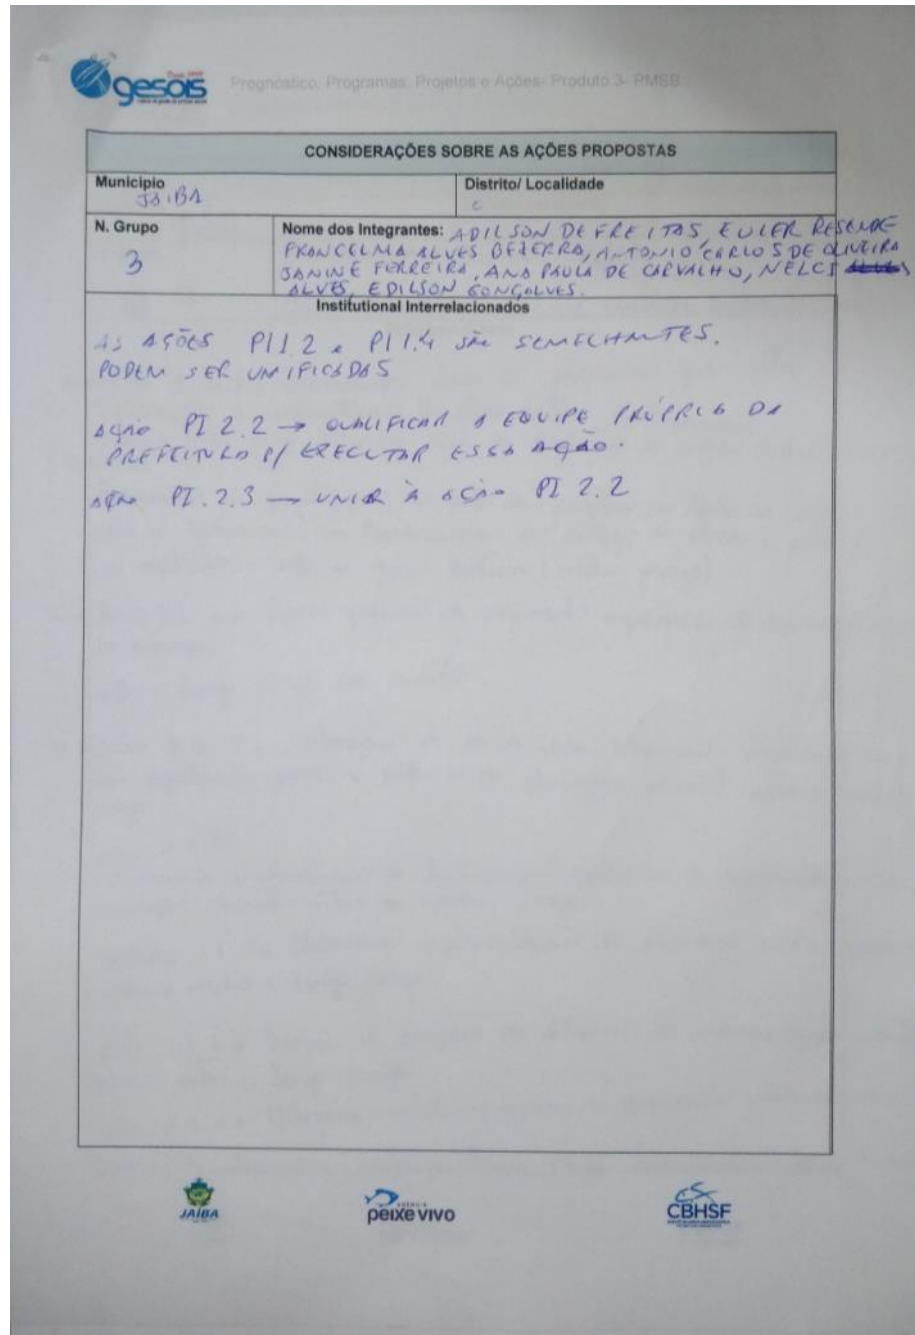 gesois
Prognóstico, Programas, Projetos e Ações- Produto 3- PMSB
CONSIDERAÇÕES SOBRE AS AÇÕES PROPOSTAS
Município
JAIBA
Distrito/ Localidade
N. Grupo
3
Nome dos Integrantes: ADILSON DE FREITAS, EULER RESENDE
FRANCELMA ALVES BEZERRA, ANTONIO CARLOS DE OLIVEIRA
JANINE FERREIRA, ANA PAULA DE CARVALHO, NELCI
ALVES, EDILSON GONÇALVES.
Institutional Interrelacionados
AS AÇÕES PI1.2 e PI1.4 são SEMELHANTES.
PODEM SER UNIFICADAS
AÇÃO PI 2.2 → QUALIFICAR A EQUIPE PRÓPRIA DA
PREFEITURA P/ EXECUTAR ESSA AÇÃO.
AÇÃO PI.2.3 — UNIR À AÇÃO PI 2.2
JAÍBA
AGÊNCIA
peixe vivo
CBHSF